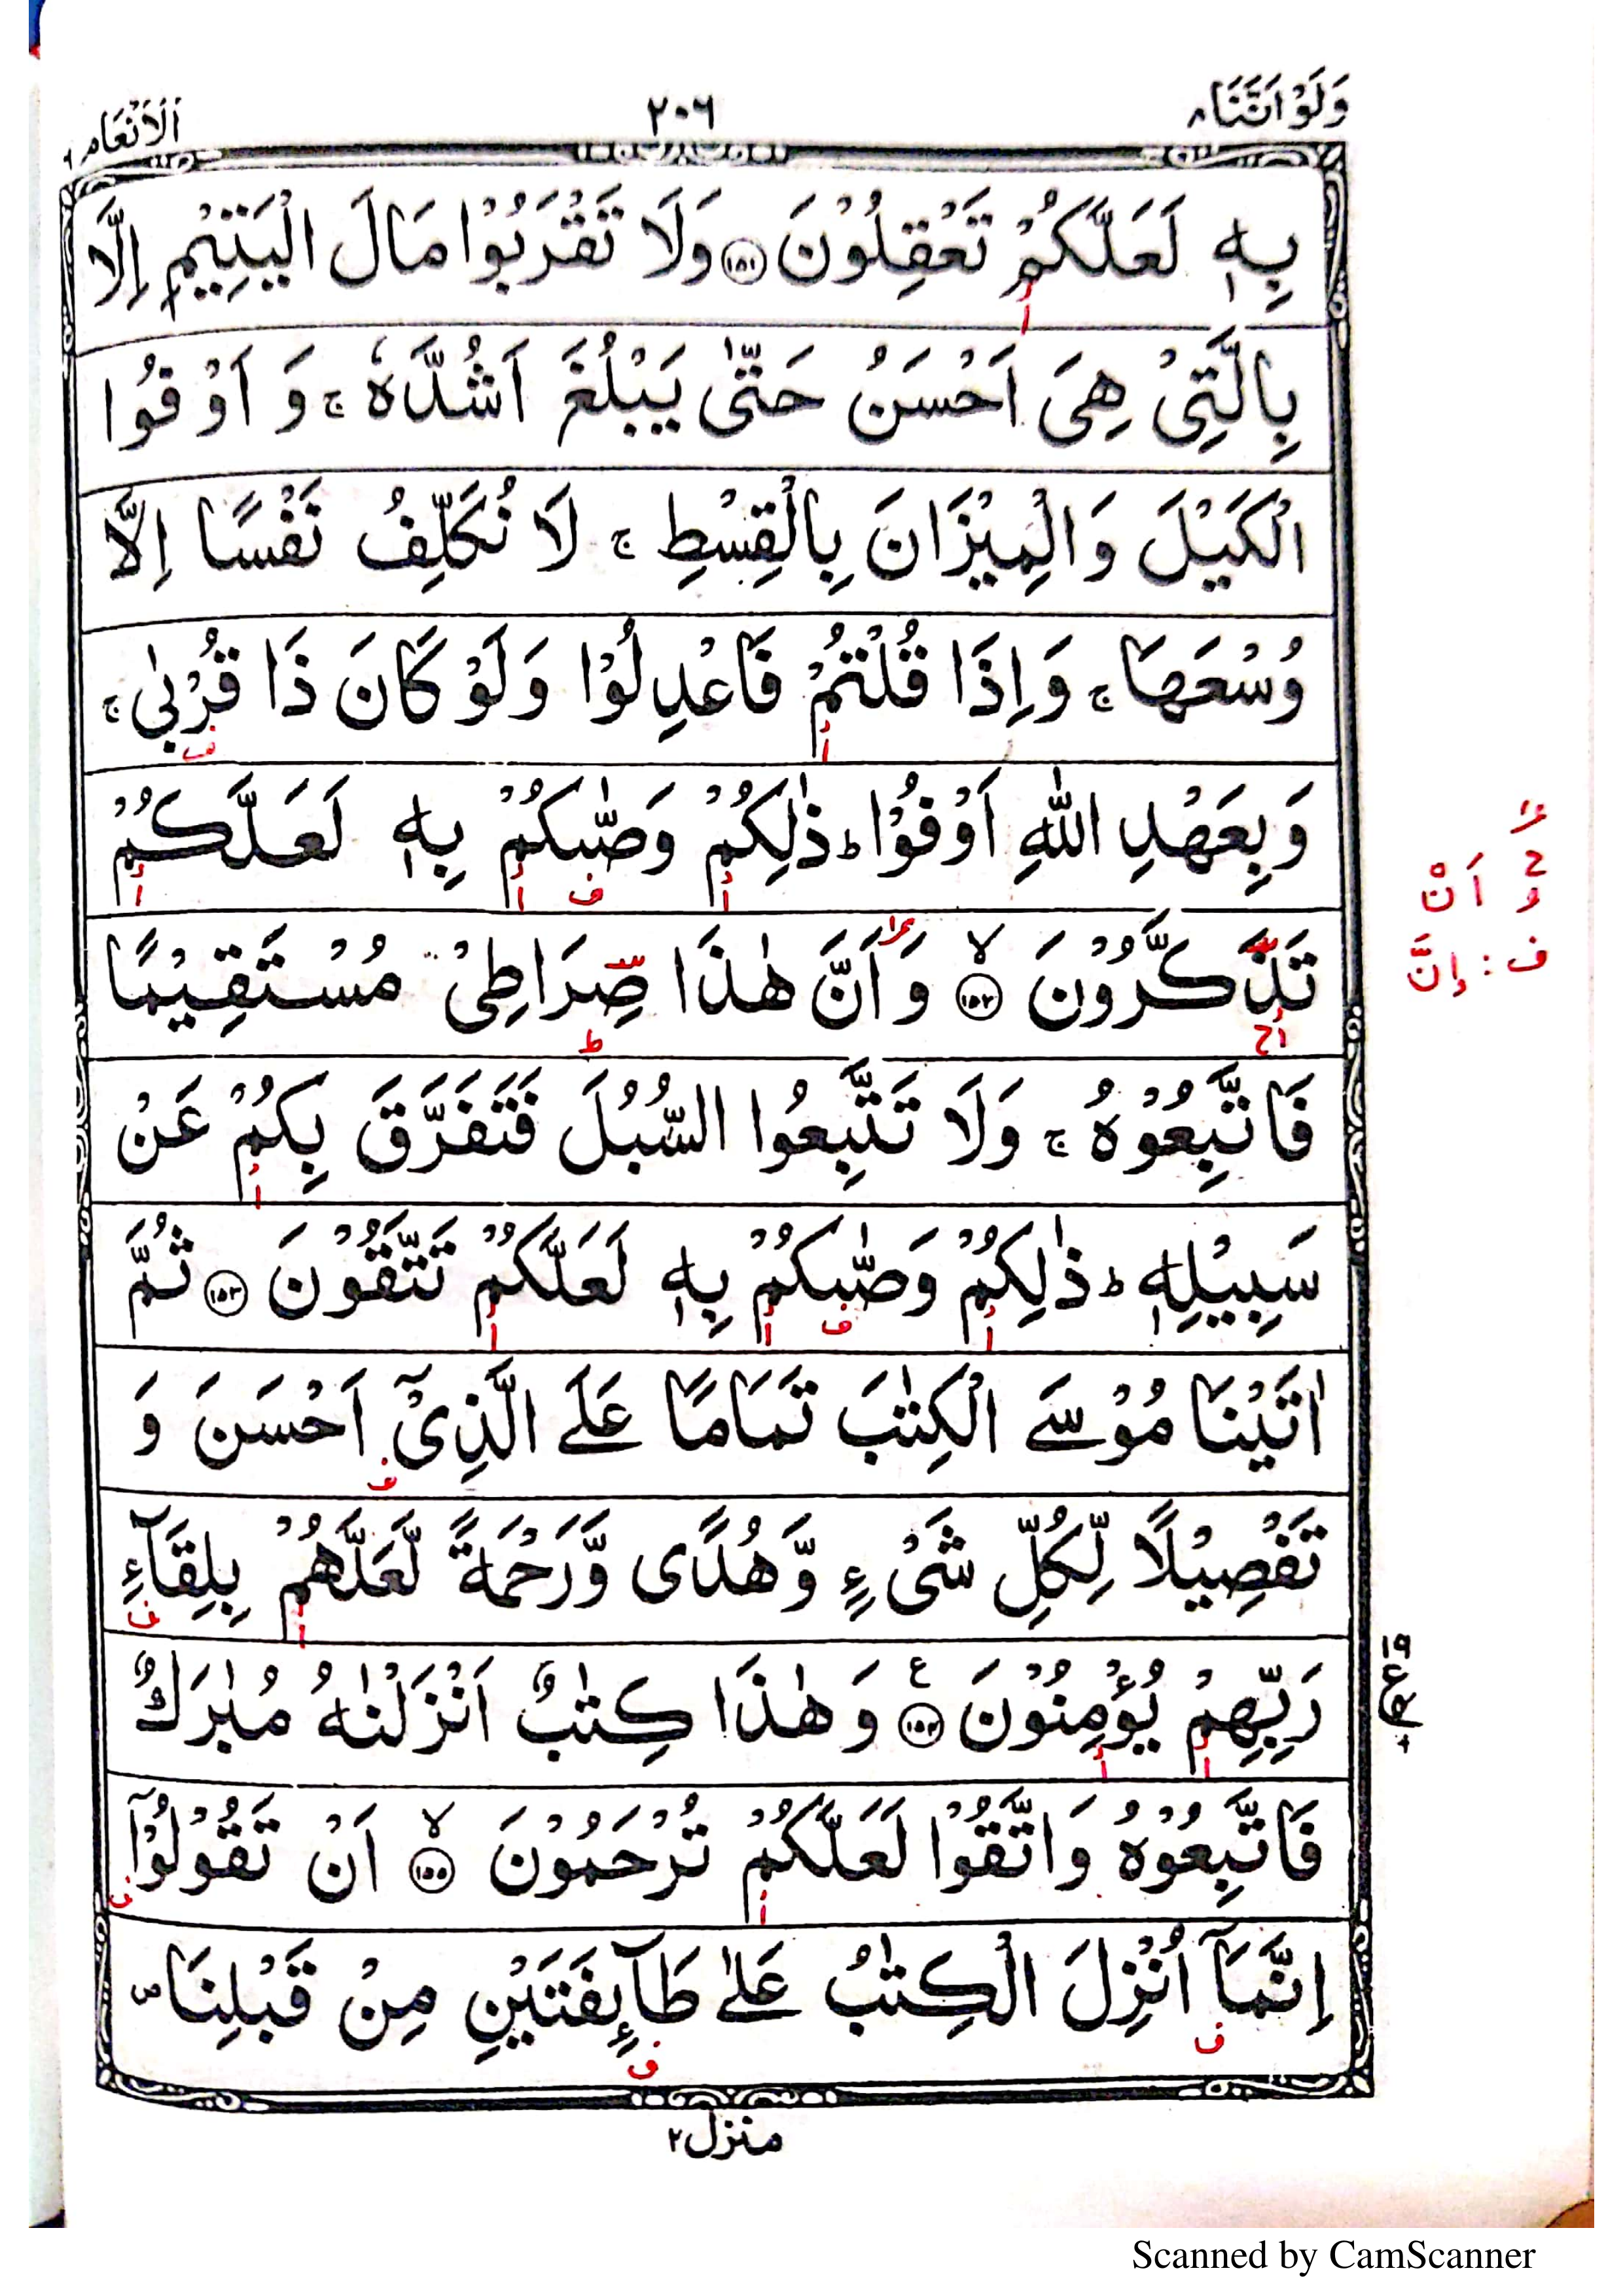 وَلَوْ اَنَّنَا ٨
٢٠٦
اَلْاَنْعَام ٦
بِهٖ لَعَلَّكُمْ تَعْقِلُوْنَ ۝١٥١ وَلَا تَقْرَبُوْا مَالَ الْيَتِيْمِ اِلَّا
بِالَّتِيْ هِيَ اَحْسَنُ حَتّٰى يَبْلُغَ اَشُدَّهٗ ۚ وَ اَوْفُوا
الْكَيْلَ وَالْمِيْزَانَ بِالْقِسْطِ ۚ لَا نُكَلِّفُ نَفْسًا اِلَّا
وُسْعَهَا ۚ وَاِذَا قُلْتُمْ فَاعْدِلُوْا وَلَوْ كَانَ ذَا قُرْبٰى ۚ
وَبِعَهْدِ اللّٰهِ اَوْفُوْا ؕ ذٰلِكُمْ وَصّٰىكُمْ بِهٖ لَعَلَّكُمْ
تَذَكَّرُوْنَ ۝١٥٢ۙ وَ اَنَّ هٰذَا صِرَاطِيْ مُسْتَقِيْمًا
فَاتَّبِعُوْهُ ۚ وَلَا تَتَّبِعُوا السُّبُلَ فَتَفَرَّقَ بِكُمْ عَنْ
سَبِيْلِهٖ ؕ ذٰلِكُمْ وَصّٰىكُمْ بِهٖ لَعَلَّكُمْ تَتَّقُوْنَ ۝١٥٣ ثُمَّ
اٰتَيْنَا مُوْسَى الْكِتٰبَ تَمَامًا عَلَى الَّذِيْۤ اَحْسَنَ وَ
تَفْصِيْلًا لِّكُلِّ شَيْءٍ وَّهُدًى وَّرَحْمَةً لَّعَلَّهُمْ بِلِقَآءِ
رَبِّهِمْ يُؤْمِنُوْنَ ۝١٥٤ؑ وَ هٰذَا كِتٰبٌ اَنْزَلْنٰهُ مُبٰرَكٌ
فَاتَّبِعُوْهُ وَاتَّقُوْا لَعَلَّكُمْ تُرْحَمُوْنَ ۝١٥٥ۙ اَنْ تَقُوْلُوْۤا
اِنَّمَاۤ اُنْزِلَ الْكِتٰبُ عَلٰى طَآئِفَتَيْنِ مِنْ قَبْلِنَا ۪
اَنْ
ف : اِنَّ
منزل٢
Scanned by CamScanner